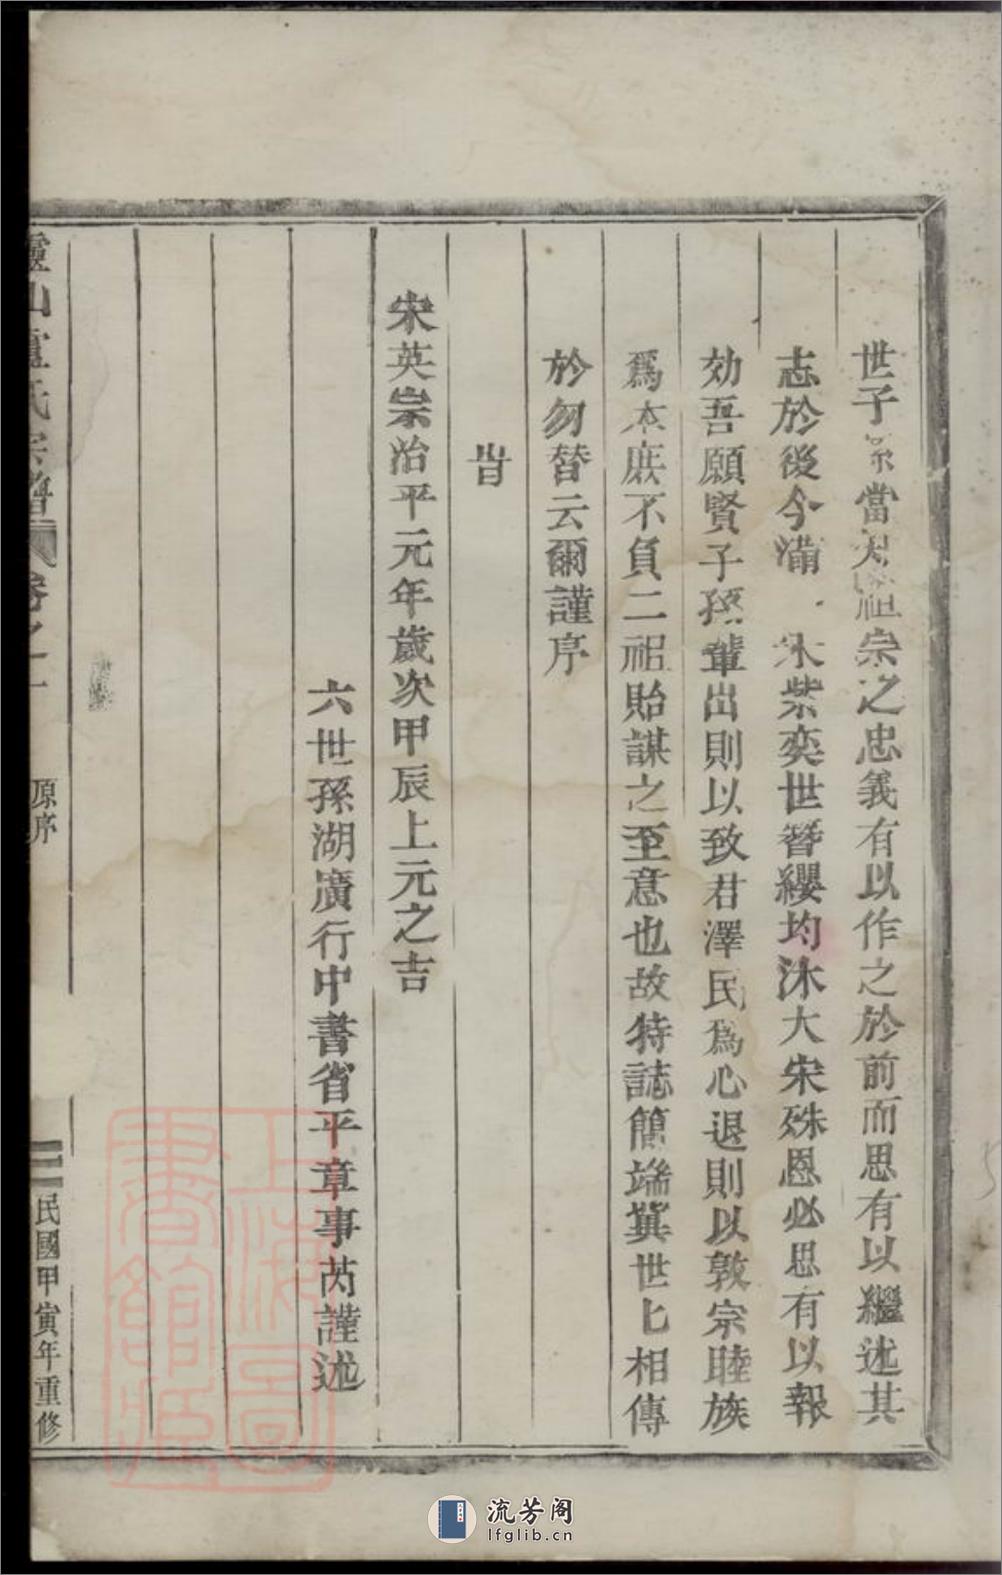 世子 當 祖宗之忠義有以作之於前而思有以繼述其
志於後今滿 朱紫奕世簪纓均沐大宋殊恩必思有以報
効吾願賢子孫輩出則以致君澤民爲心退則以敦宗睦族
爲本庶不負二祖貽謀之至意也故特誌簡端冀世匕相傳
於勿替云爾謹序
旹
宋英宗治平元年歲次甲辰上元之吉
六世孫湖廣行中書省平章事芮謹述
靈山盧氏宗譜 卷之一
原序
民國甲寅年重修
上海圖
書館藏
流芳阁
lfglib.cn